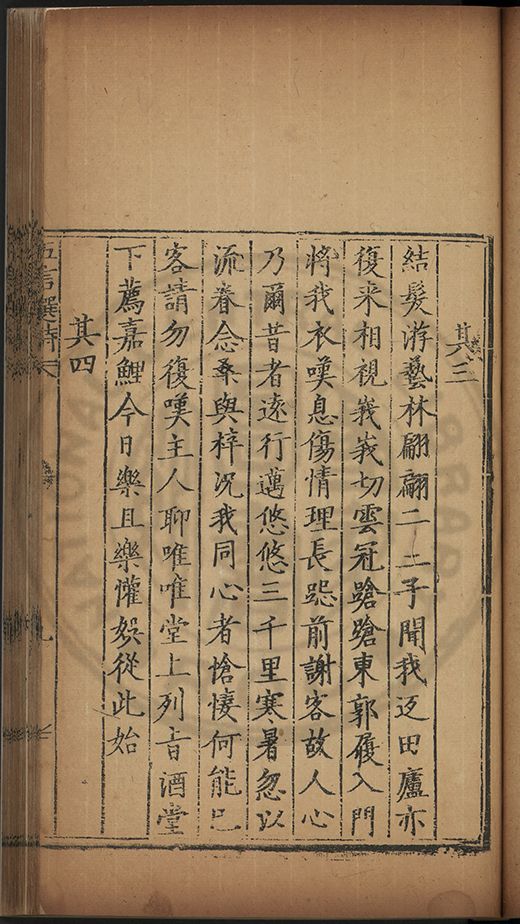 其三
結髮游藝林翩翩二三子聞我返田廬亦
復来相視峩峩切雲冠蹌蹌東郭履入門
將我衣嘆息傷情理長跽前謝客故人心
乃爾昔者遠行邁悠悠三千里寒暑忽以
流眷念桑與梓況我同心者愴悽何能已
客請勿復嘆主人聊唯唯堂上列旨酒堂
下薦嘉鯉今日樂且樂懽娛從此始
其四
五言選詩
九